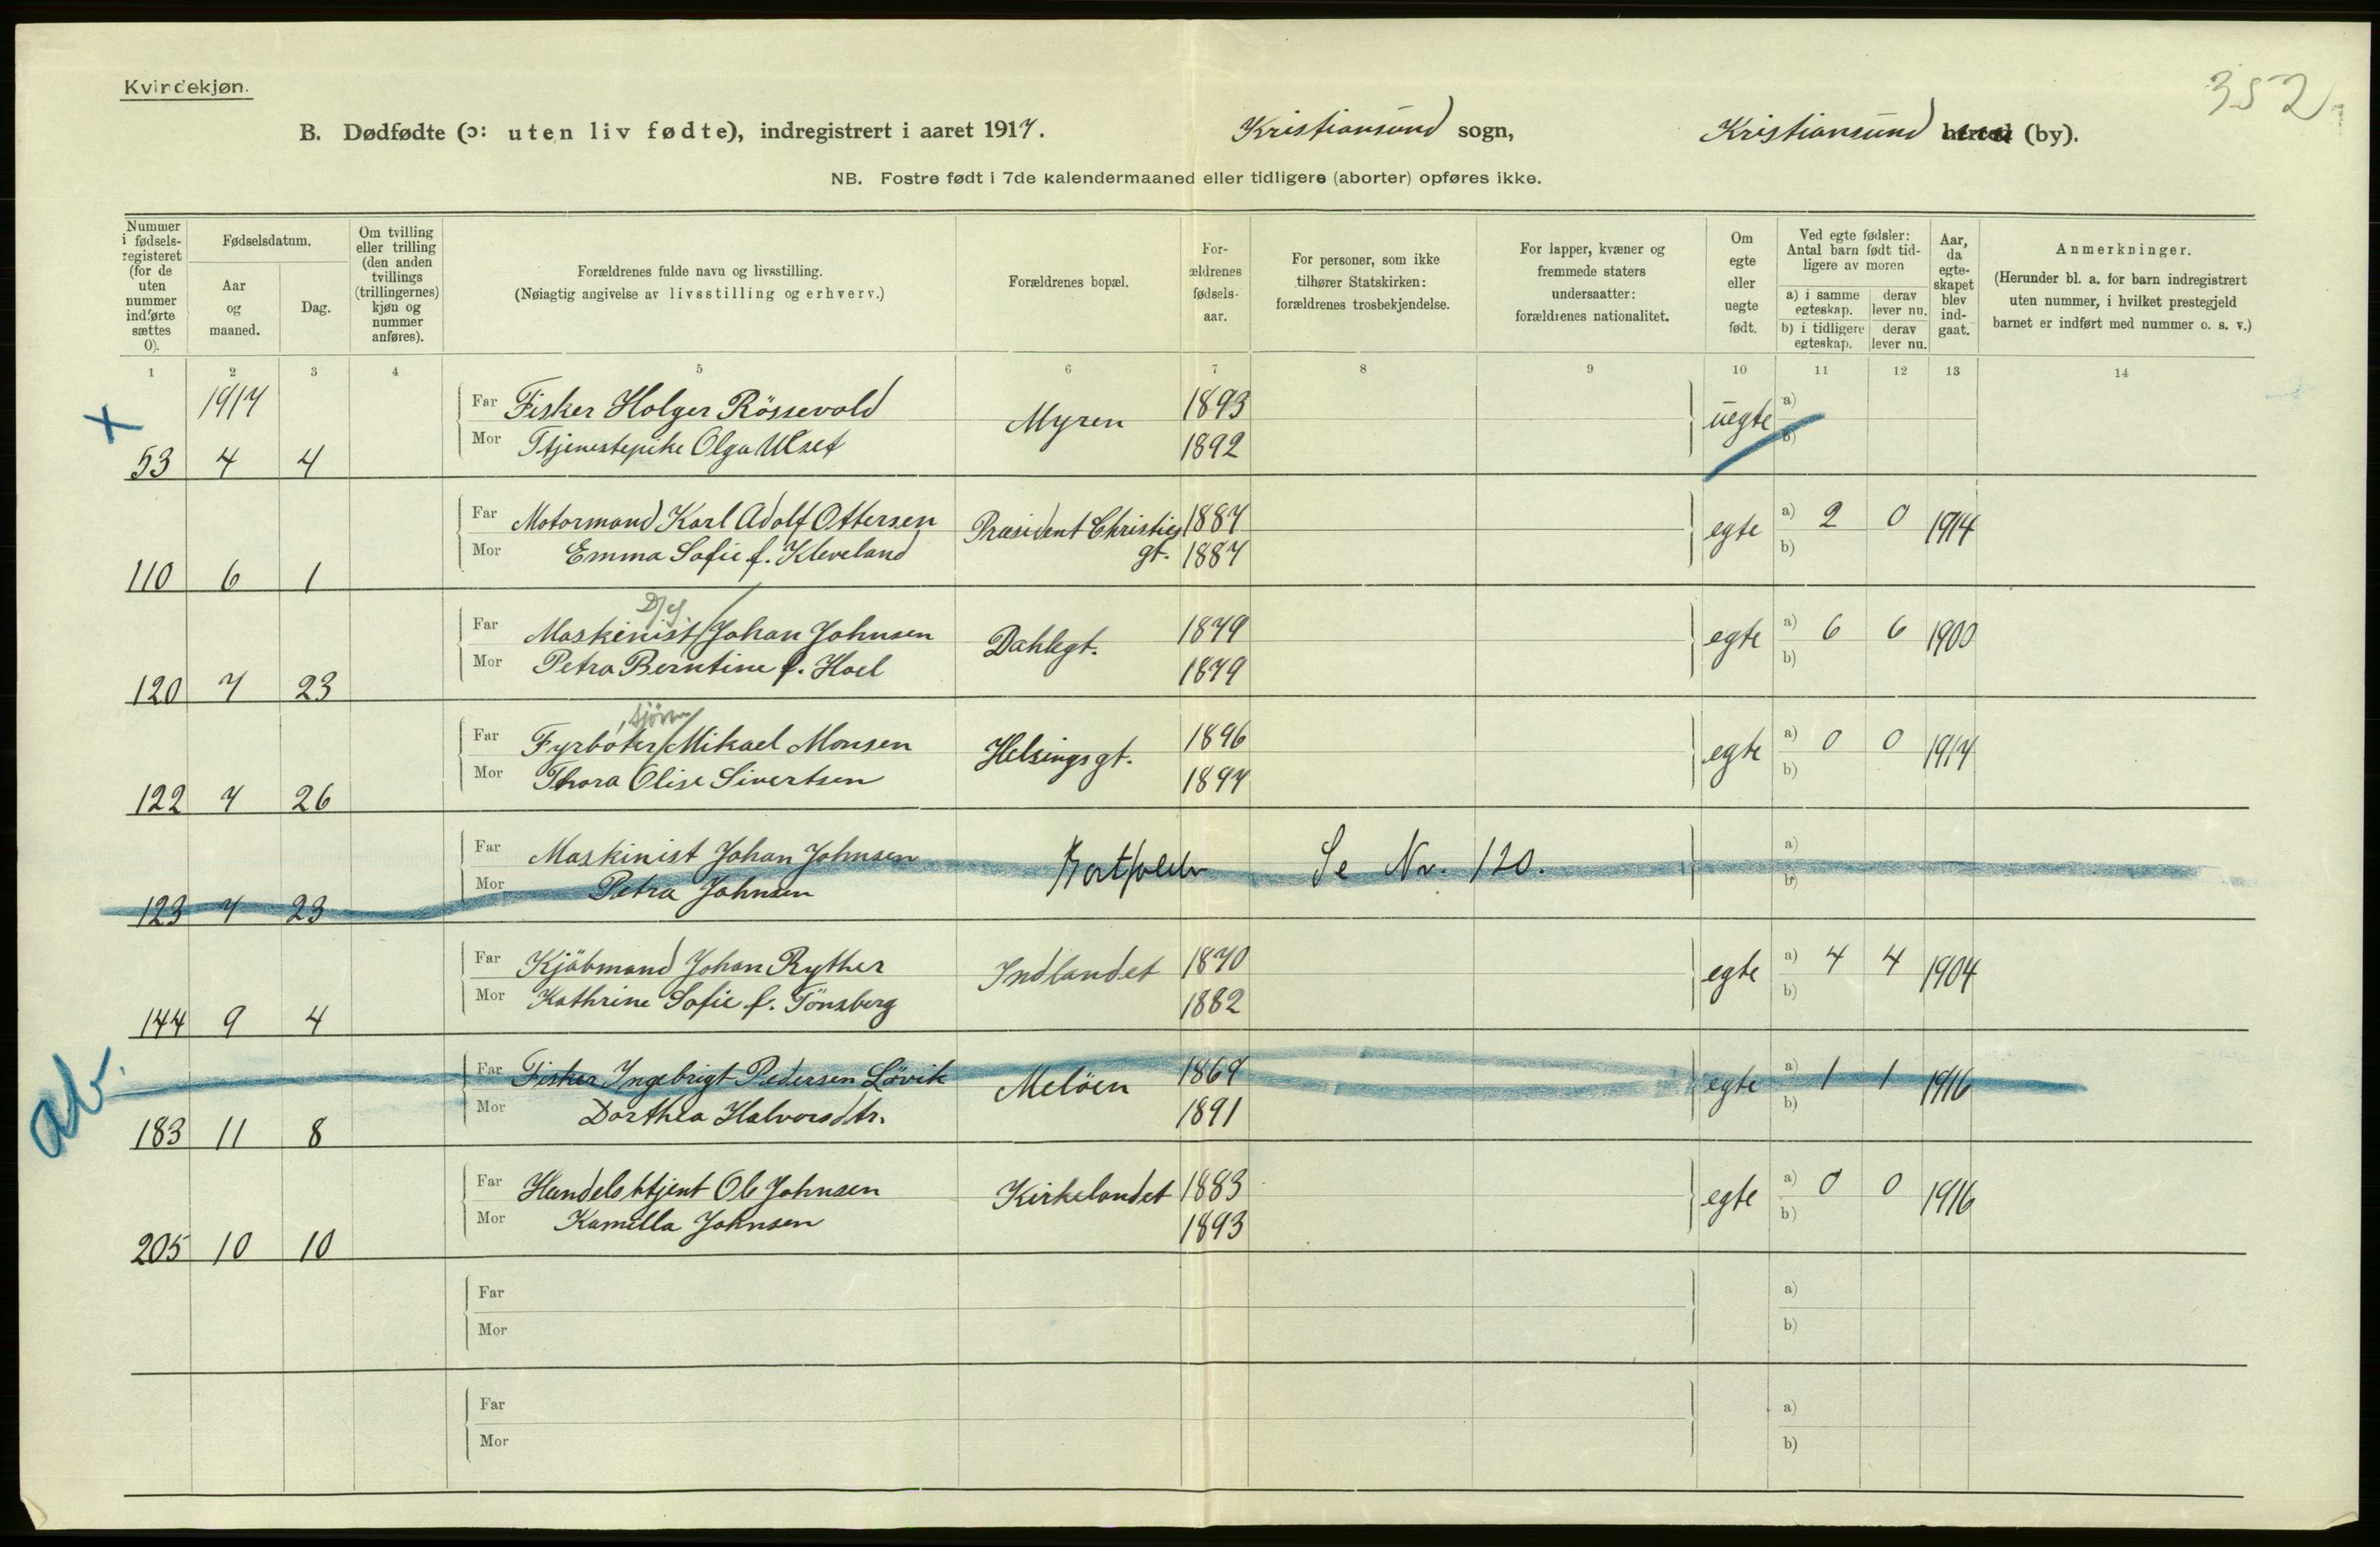 Kvindekjøn.
352
B. Dødfødte (ɔ: uten liv fødte), indregistrert i aaret 1917. Kristiansund sogn, Kristiansund herred (by).
NB. Fostre født i 7de kalendermaaned eller tidligere (aborter) opføres ikke.
Nummer i fødsels-registeret (for de uten nummer indførte sættes 0).
Fødselsdatum.
Aar og maaned.
Dag.
Om tvilling eller trilling (den anden tvillings (trillingernes) kjøn og nummer anføres).
Forældrenes fulde navn og livsstilling.
(Nøiagtig angivelse av livsstilling og erhverv.)
Forældrenes bopæl.
For-ældrenes fødsels-aar.
For personer, som ikke tilhører Statskirken: forældrenes trosbekjendelse.
For lapper, kvæner og fremmede staters undersaatter: forældrenes nationalitet.
Om egte eller uegte født.
Ved egte fødsler: Antal barn født tid-ligere av moren
a) i samme egteskap. derav lever nu.
b) i tidligere egteskap. derav lever nu.
Aar, da egte-skapet blev ind-gaat.
Anmerkninger.
(Herunder bl. a. for barn indregistrert uten nummer, i hvilket prestegjeld barnet er indført med nummer o. s. v.)
1 2 3 4 5 6 7 8 9 10 11 12 13 14
1917
x Far Fisker Holger Rössevold Myren 1893 uegte a)
53 4 4 Mor Tjenestepike Olga Ulset 1892 b)
Far Motormand Karl Adolf Ottersen Præsident Christies 1887 egte a) 2 0 1914
110 6 1 Mor Emma Sofie f. Kleveland gt. 1887 b)
Far Maskinist Johan Johnsen Dahlegt. 1879 egte a) 6 6 1900
120 7 23 Mor Petra Berntine f. Hoel 1879 b)
Far Fyrböter Mikael Monsen Helsingsgt. 1896 egte a) 0 0 1917
122 7 26 Mor Thora Olise Sivertsen 1897 b)
Far Maskinist Johan Johnsen Bortfalder Se Nr. 120. a)
123 7 23 Mor Petra Johnsen b)
Far Kjöbmand Johan Ryther Indlandet 1870 egte a) 4 4 1904
144 9 4 Mor Kathrine Sofie f. Tönsberg 1882 b)
ab. Far Fisker Ingebrigt Pedersen Lövik Melöen 1867 egte a) 1 1 1916
183 11 8 Mor Dorthea Halvorsdtr. 1891 b)
Far Handelsbtjent Ole Johnsen Kirkelandet 1883 egte a) 0 0 1916
205 10 10 Mor Kamilla Johnsen 1893 b)
Far a)
Mor b)
Far a)
Mor b)